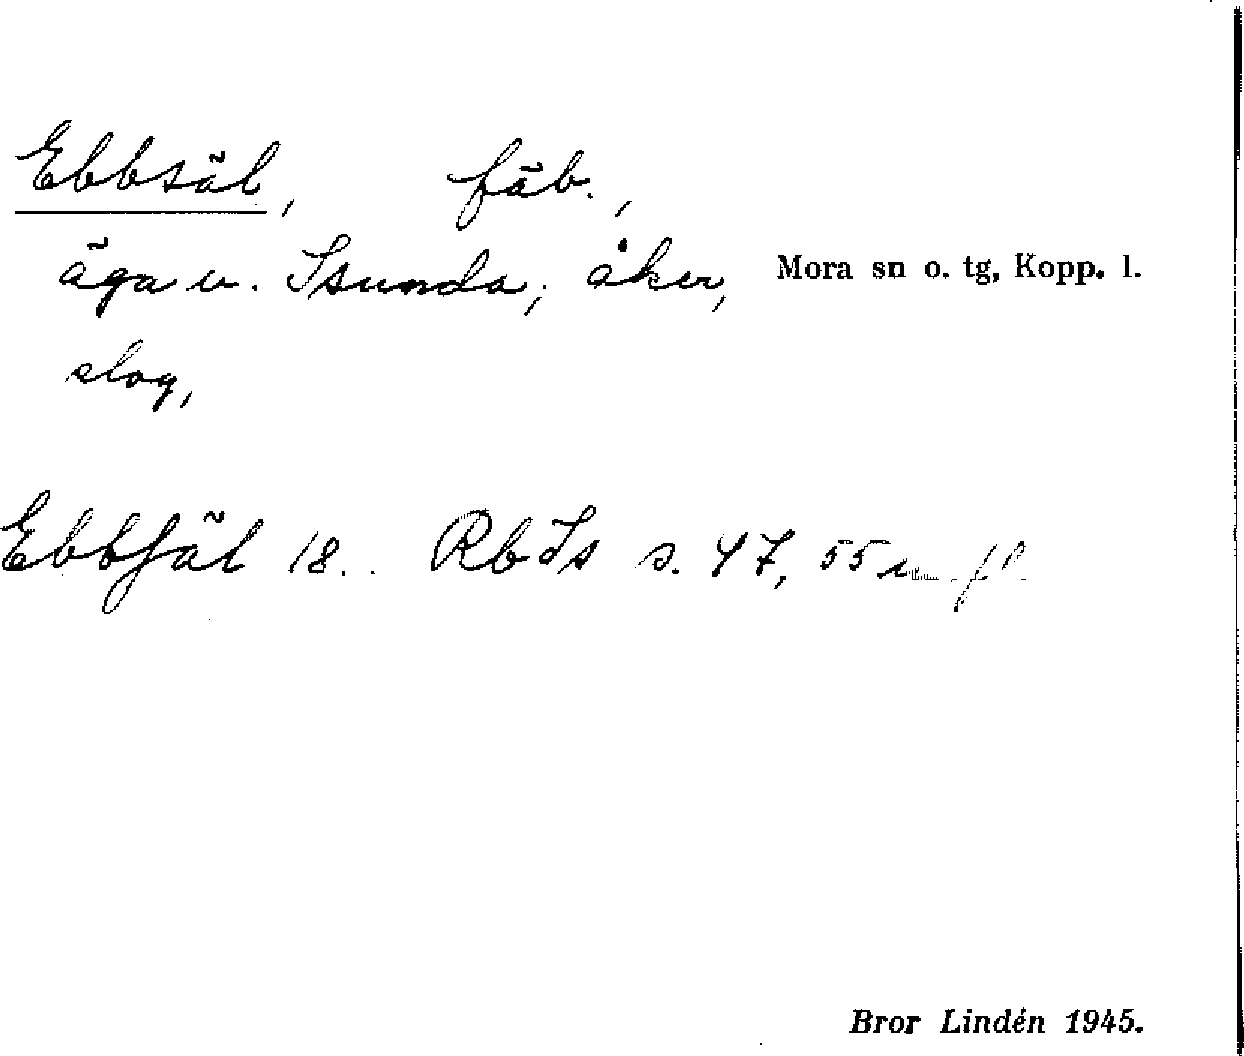 Ebbsäl, fäb.,
äga u. Isunda; åker, Mora sn o. tg, Kopp. l.
slog,
Ebbſäl 18.. Rb Is s. 47, 55 m fl.
Bror Lindén 1945.